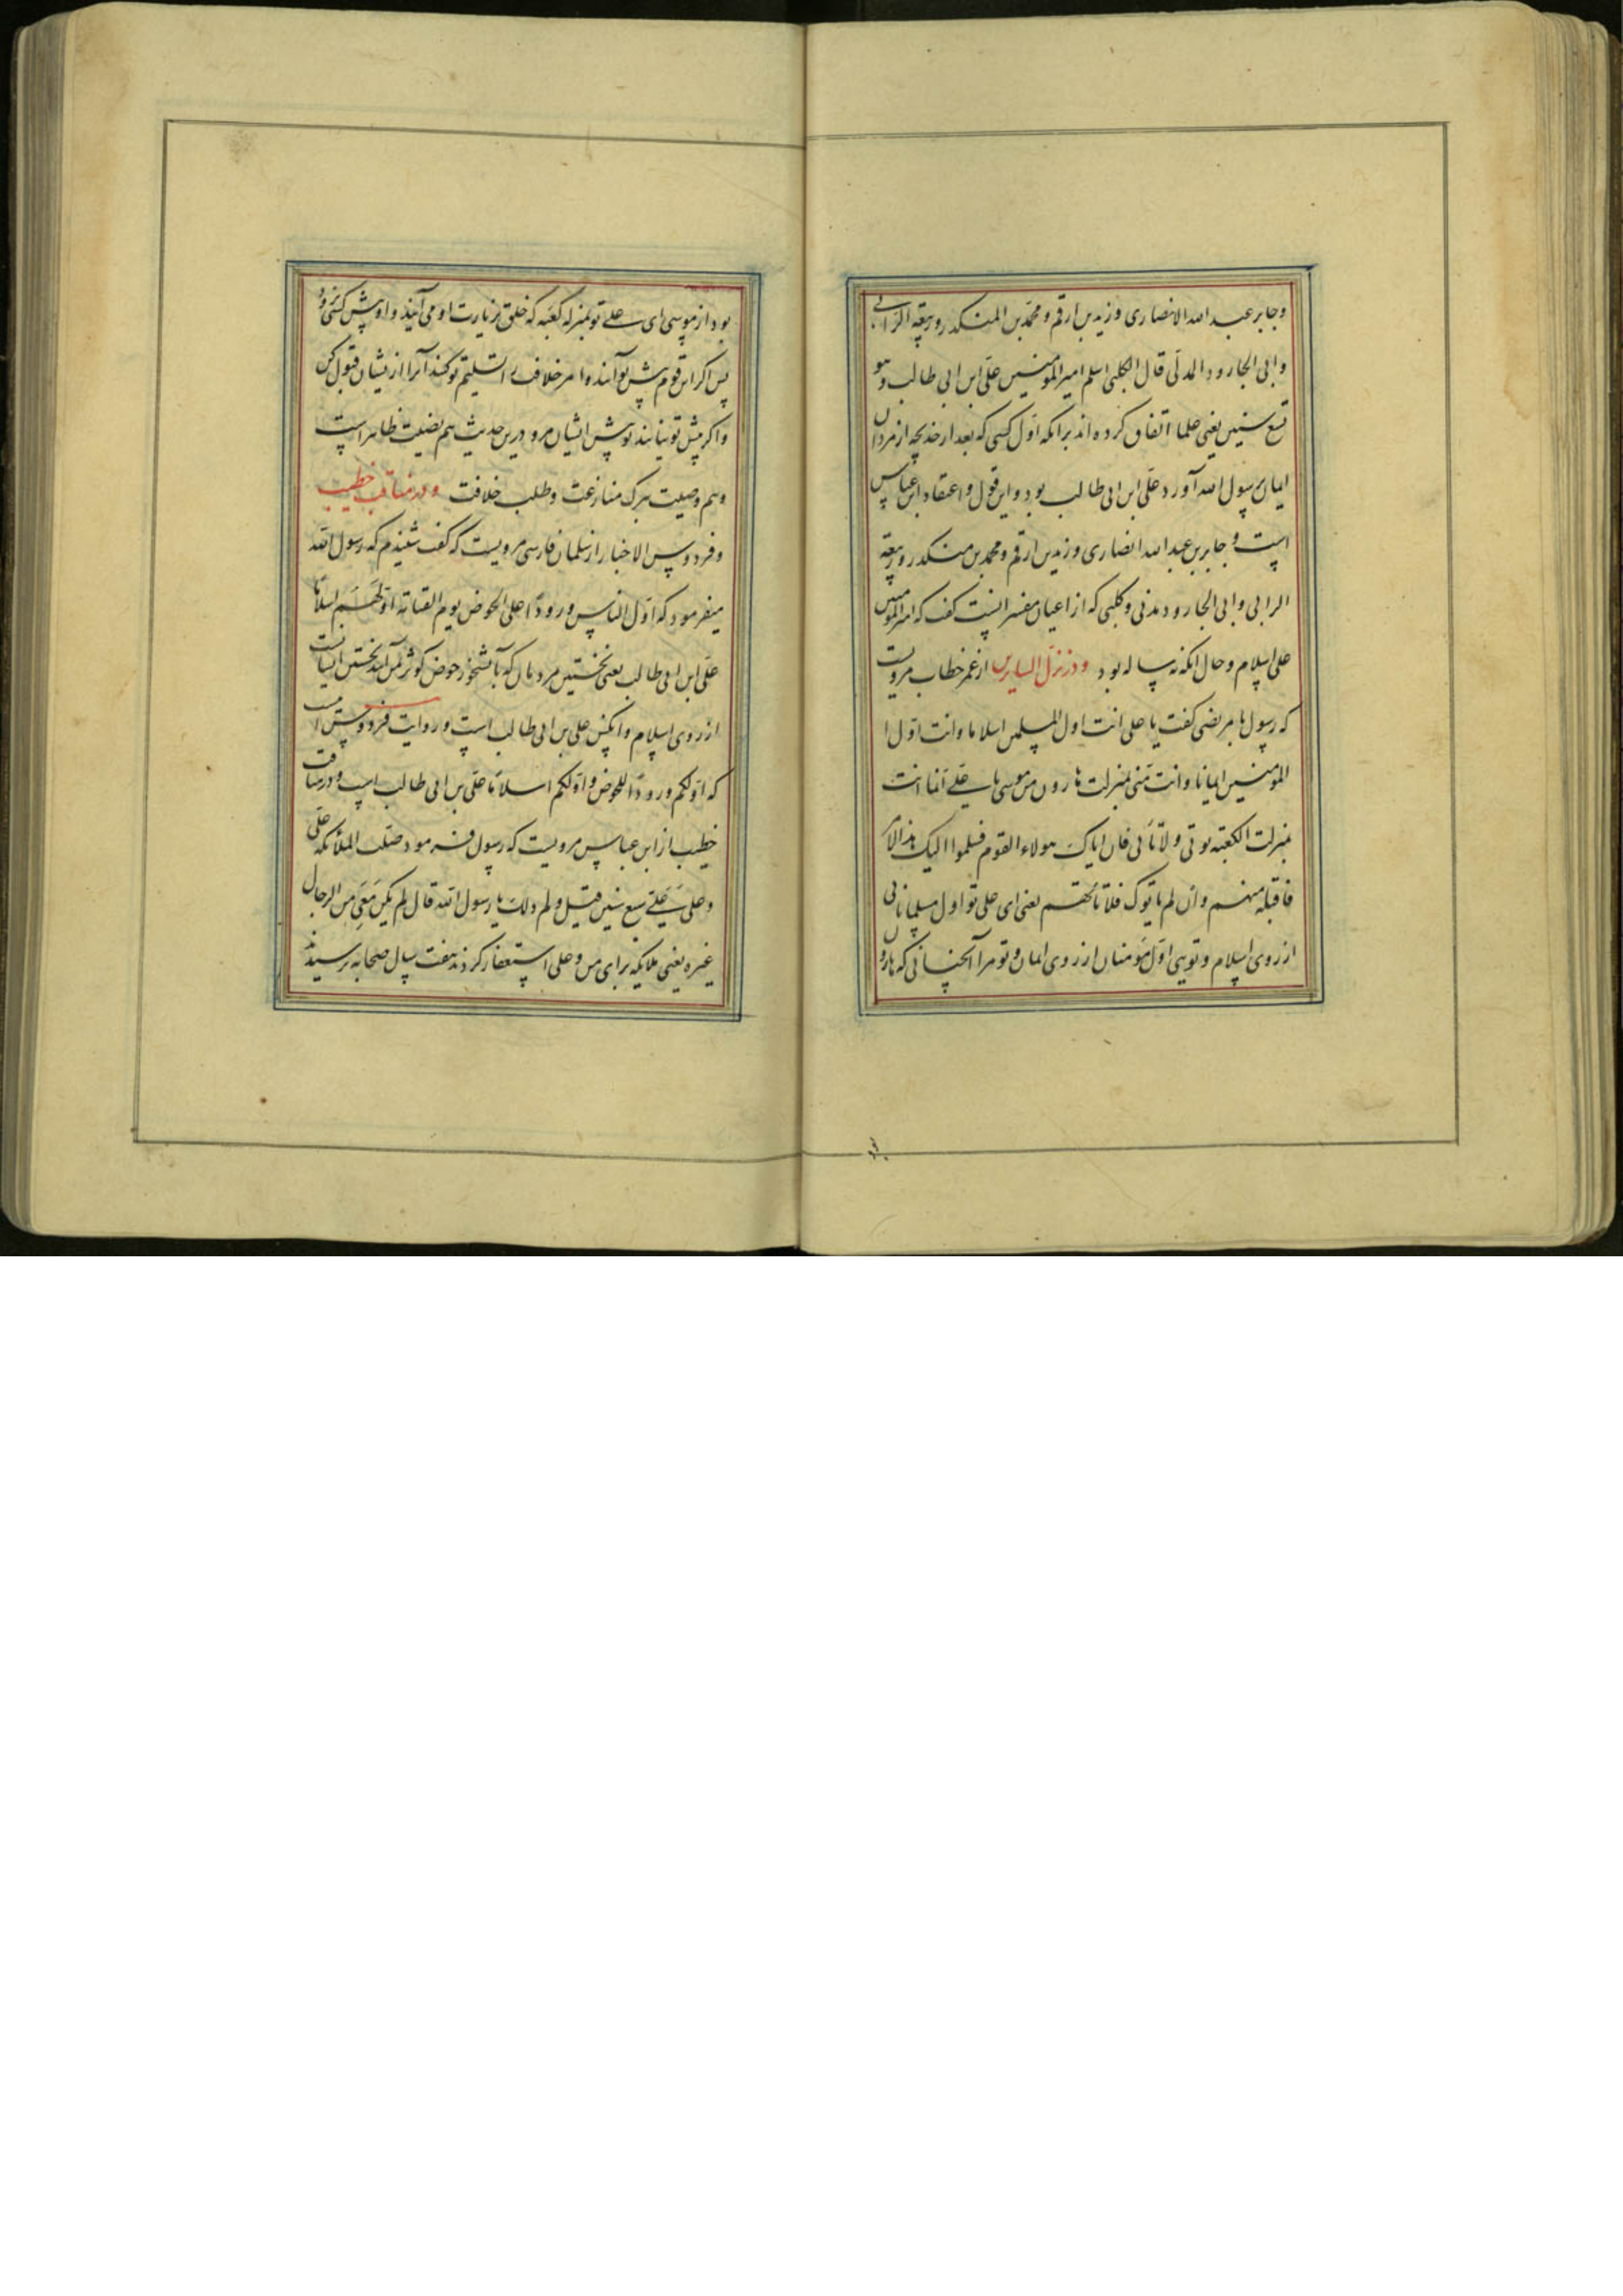 وجابر عبد الله الانصاری وزید بن ارقم و محمد بن المنکدر و ربیعة الرابی
وابی الجارود المدنی قال الکلبی اسلم امیر المومنین علی ابن ابی طالب وهو
تسع سنین یعنی علما اتفاق کرده اند برانکه اول کسی که بعد از خدیجه از مردان
ایمان برسول الله آورد علی ابن ابی طالب بود واین قول و اعتقاد ابن عباس
است و جابر بن عبد الله انصاری و زید بن ارقم و محمد بن منکدر و ربیعه
الرابی و ابی الجارود مدنی و کلبی که از اعیان مفسرانست کفت که امیر المومنین
علی اسلام وحال انکه نه ساله بود ودر نزل السایرین از عمر خطاب مرویست
که رسول با مرتضی کفت یا علی انت اول المسلمین اسلاما وانت اول ا
المومنین ایمانا وانت منی بمنزلت هارون من موسی یا علی انما انت
بمنزلت الکعبة توتی ولا تاتی فان اتاک هولاء القوم فسلموا الیک هذ الامر
فاقبله منهم وان لم یاتوک فلا تاتهم یعنی ای علی تو اول مسلمانانی
از روی اسلام و تویی اول مومنان از روی ایمان و تو مرا آنچنانی که هارون
بود از موسی ای علی تو بمنزله کعبه که خلق بزیارت او می آیند و او پیش کسی نرود
پس اکر این قوم پیش تو آیند وامر خلافت را تسلیم تو کنند آنرا از یشان قبول کن
واکر پیش تو نیایند تو پیش ایشان مرو درین حدیث هم فضیلت ظاهر است
وهم وصیت بترک منازعت وطلب خلافت ودر مناقب خطیب
وفردوس الاخبار از سلمان فارسی مرویست که کفت شنیدم که رسول الله
میفرمود که اول الناس ورودا علی الحوض یوم القیامة اولهم اسلاما
علی ابن ابی طالب یعنی نخستین مردمان که بآبشخور حوض کوثر بمن آیند نخستین ایشانست
از روی اسلام وانکس علی بن ابی طالب است و روایت فردوس است
که اولکم ورودا للحوض و اولکم اسلاما علی بن ابی طالب است ودر مناقب
خطیب از ابن عباس مرویست که رسول فرمود صلت الملائکه علی
وعلی علی سبع سنین قیل ولم ذلک یا رسول الله قال لم یکن معی من الرجال
غیره یعنی ملایکه برای من و علی استغفار کردند هفت سال صحابه پرسیدند